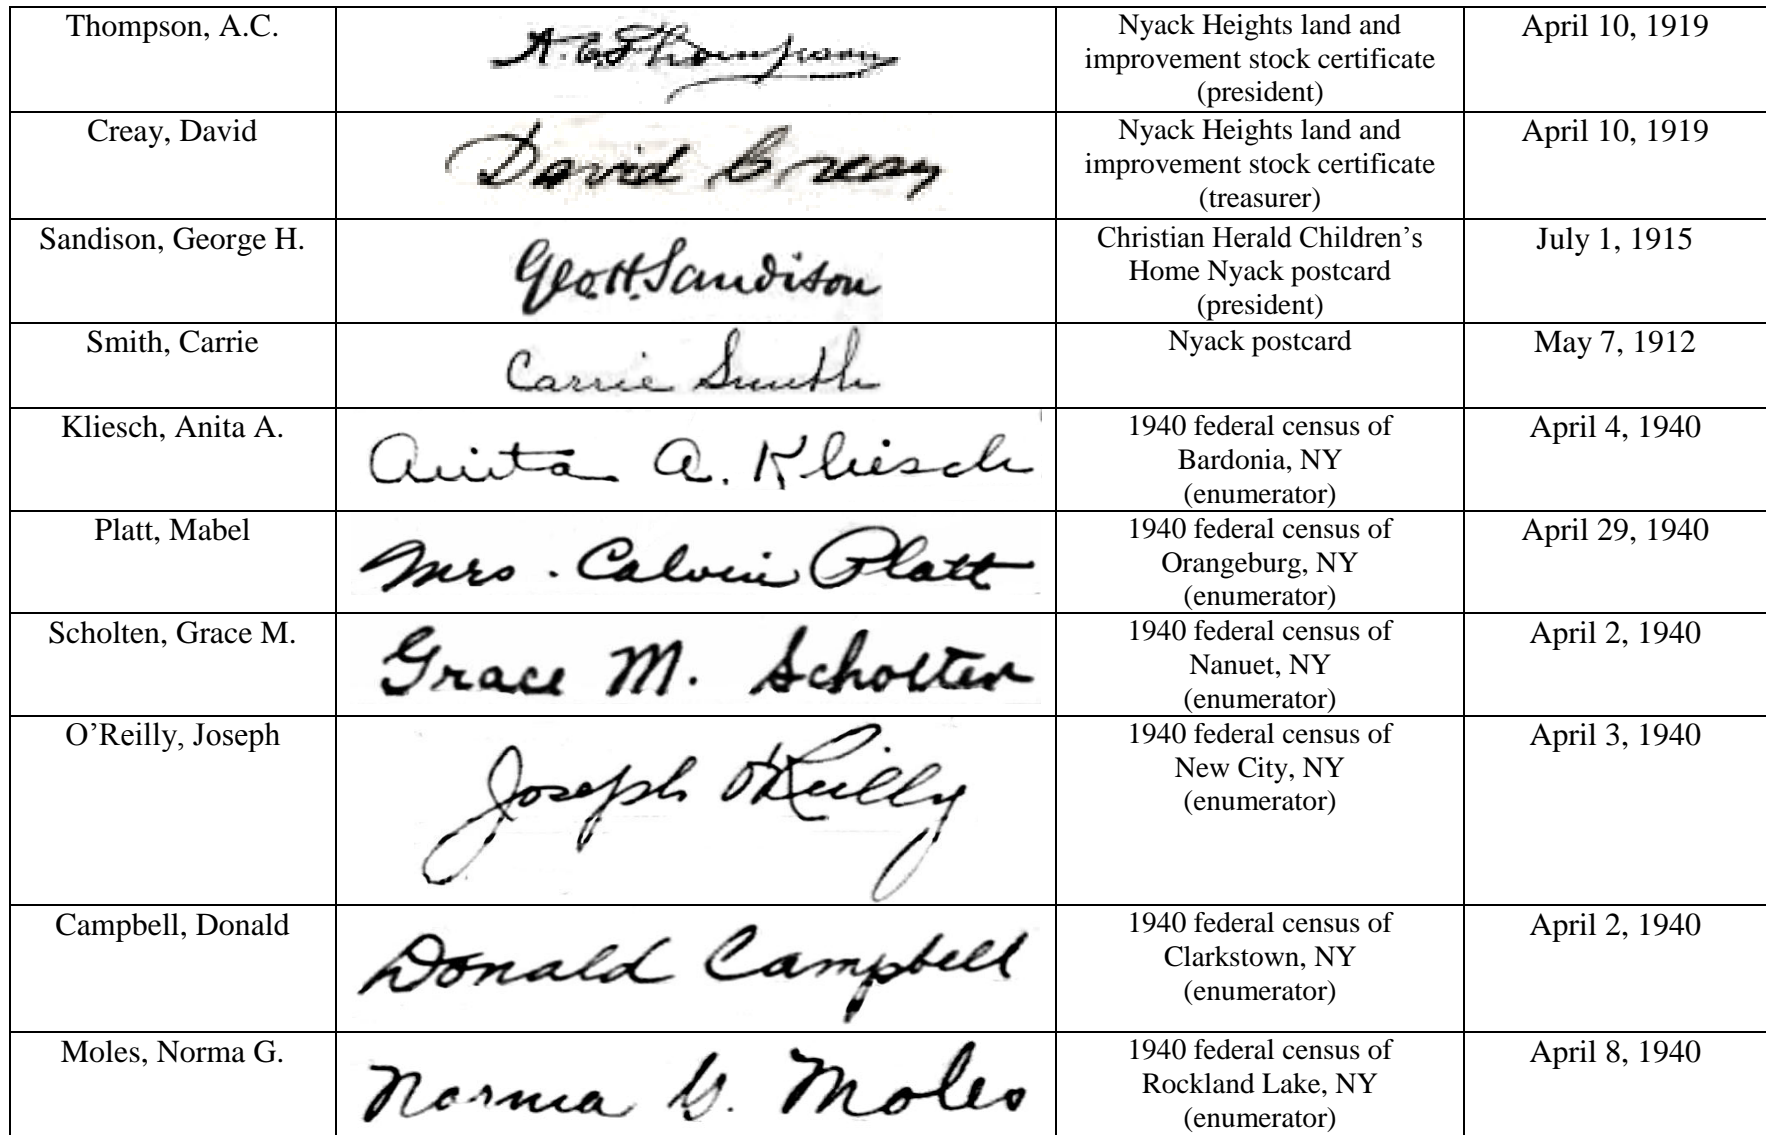 Thompson, A.C.
A.C. Thompson
Nyack Heights land and
improvement stock certificate
(president)
April 10, 1919
Creay, David
David Creay
Nyack Heights land and
improvement stock certificate
(treasurer)
April 10, 1919
Sandison, George H.
Geo. H. Sandison
Christian Herald Children’s
Home Nyack postcard
(president)
July 1, 1915
Smith, Carrie
Carrie Smith
Nyack postcard
May 7, 1912
Kliesch, Anita A.
Anita A. Kliesch
1940 federal census of
Bardonia, NY
(enumerator)
April 4, 1940
Platt, Mabel
Mrs. Calvin Platt
1940 federal census of
Orangeburg, NY
(enumerator)
April 29, 1940
Scholten, Grace M.
Grace M. Scholten
1940 federal census of
Nanuet, NY
(enumerator)
April 2, 1940
O’Reilly, Joseph
Joseph O'Reilly
1940 federal census of
New City, NY
(enumerator)
April 3, 1940
Campbell, Donald
Donald Campbell
1940 federal census of
Clarkstown, NY
(enumerator)
April 2, 1940
Moles, Norma G.
Norma G. Moles
1940 federal census of
Rockland Lake, NY
(enumerator)
April 8, 1940